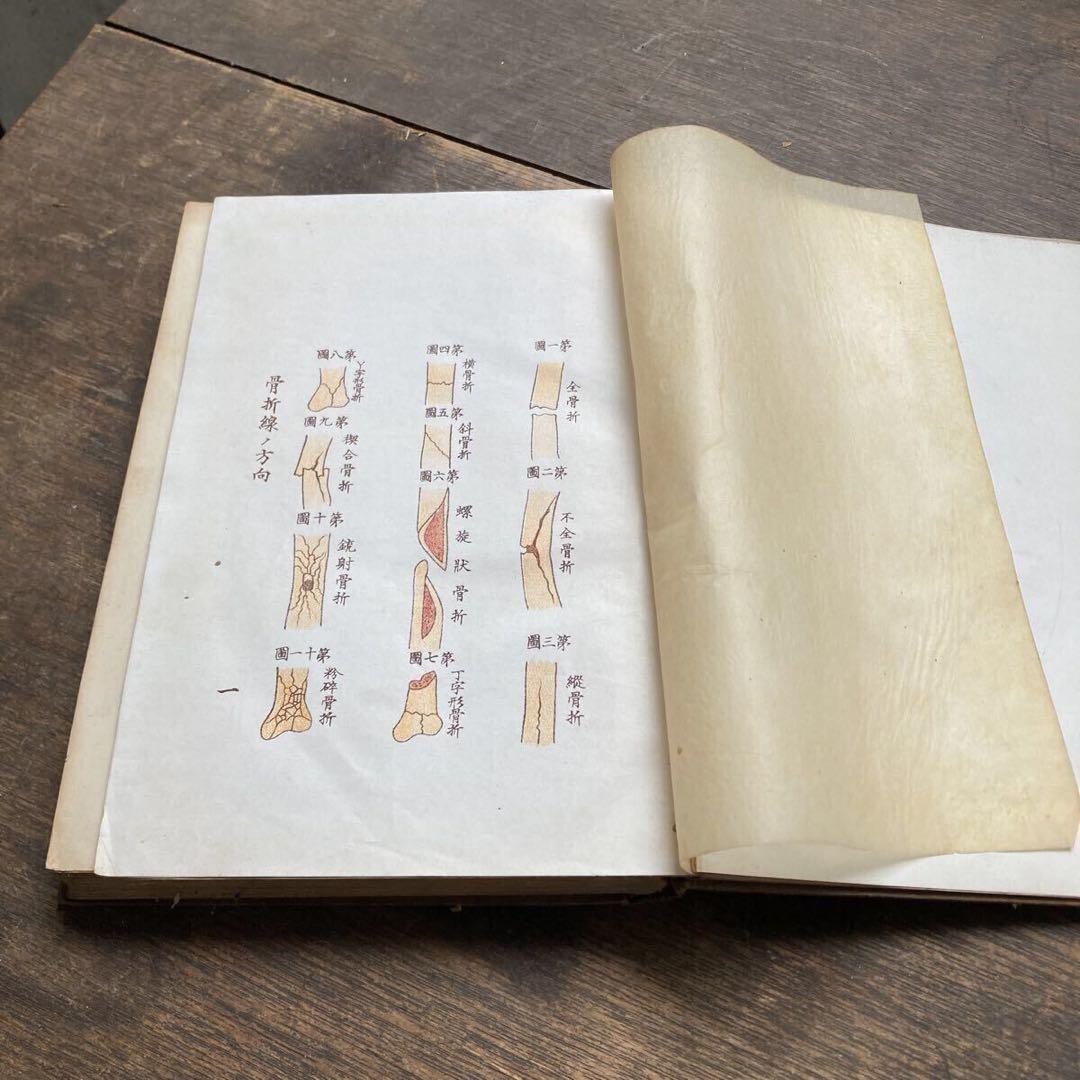 第一圖
全骨折
第二圖
不全骨折
第三圖
縱骨折
第四圖
横骨折
第五圖
斜骨折
第六圖
螺旋狀骨折
第七圖
丁字形骨折
第八圖
丫字形骨折
第九圖
楔合骨折
第十圖
銃射骨折
第十一圖
粉碎骨折
骨折線ノ方向
一